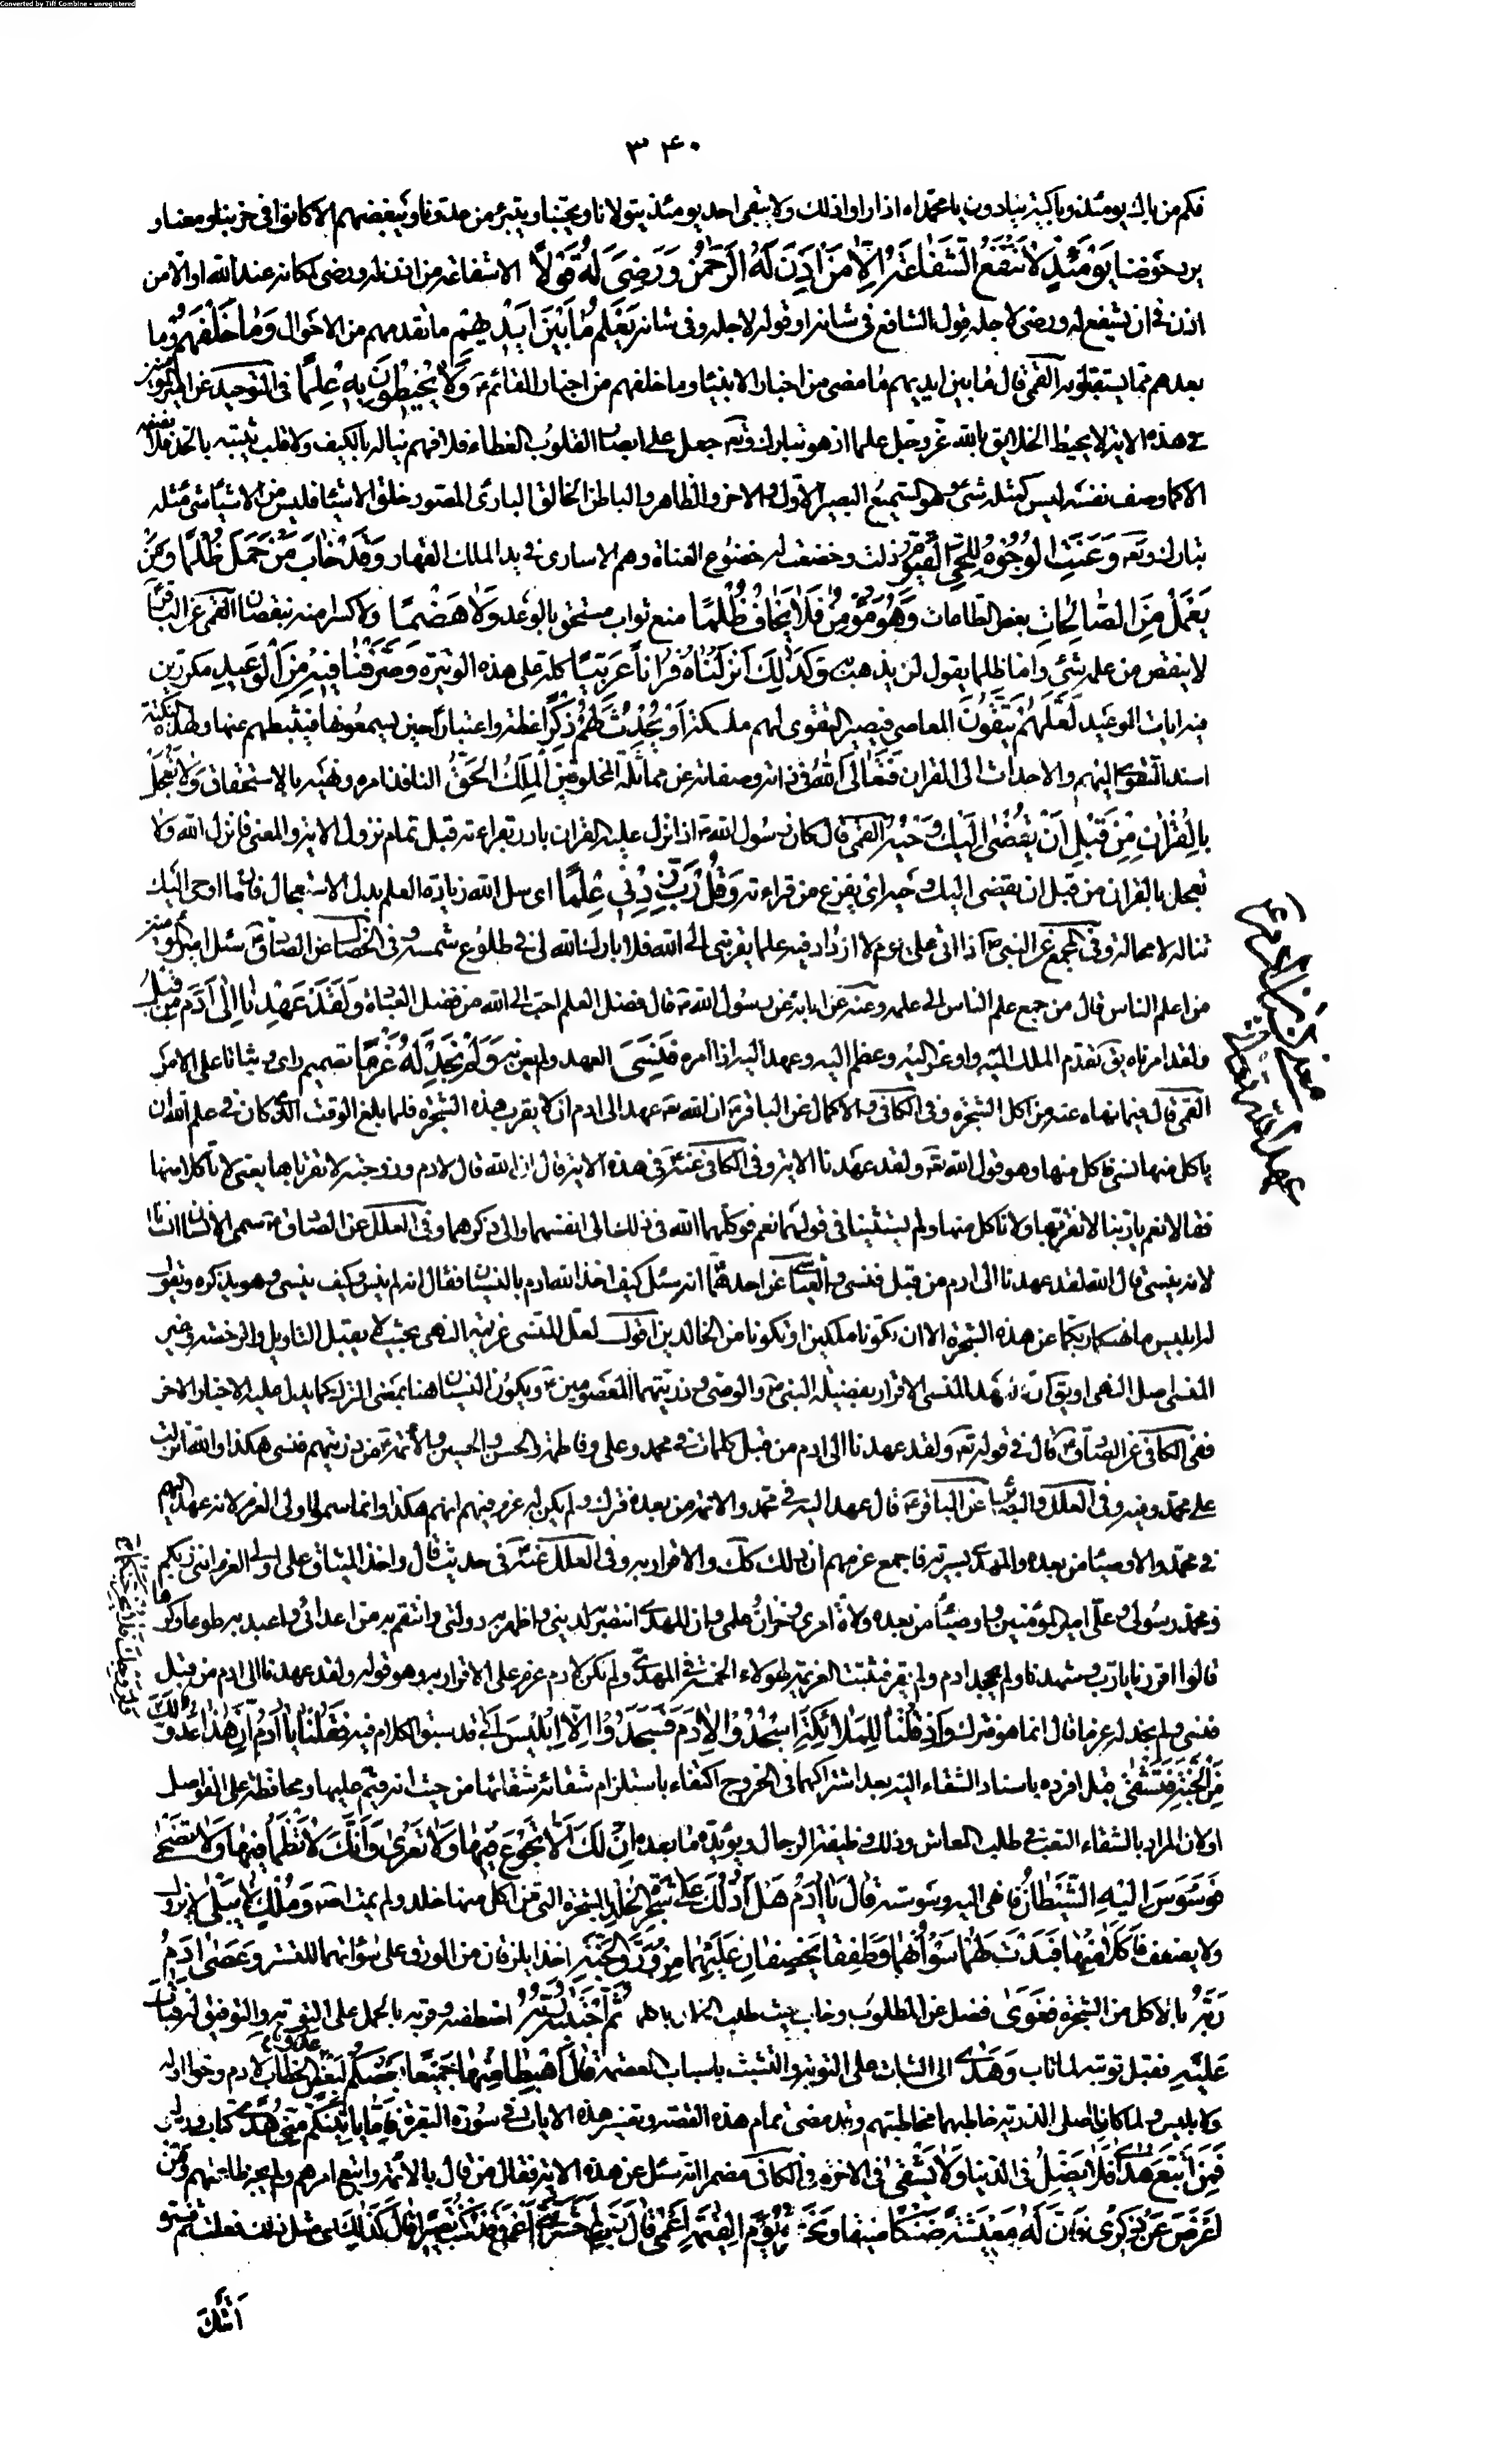 Converted by Tiff Combine - unregistered
۳۴۰
فكم من باك يومئذ وباكية ينادون يا محمداه اذا راوا ذلك ولا يبقى احد يومئذ يتولانا ويحبنا ويتبرء من عدونا ويبغضهم الا كانوا في حزبنا ومعنا و
يرد حوضنا يَوْمَئِذٍ لا تَنْفَعُ الشَّفاعَةُ إِلاَّ مَنْ أَذِنَ لَهُ الرَّحْمنُ وَرَضِيَ لَهُ قَوْلاً الا شفاعة من اذن له ورضى لمكانه عند الله او الا من
اذن في ان يشفع له ورضى لاجله قول الشافع في شانه او قوله لاجله وفى شانه يَعْلَمُ ما بَيْنَ أَيْدِيهِمْ ما تقدمهم من الاحوال وَما خَلْفَهُمْ وما
بعدهم مما يستقبلونه القمى قال ما بين ايديهم ما مضى من اخبار الانبياء وما خلفهم من اخبار القائم ع وَلا يُحِيطُونَ بِهِ عِلْماً في التوحيد عن امير المؤمنين
في هذه الاية لا يحيط الخلايق بالله عز وجل علما اذ هو تبارك وتع جعل على ابصار القلوب الغطاء فلا فهم يناله بالكيف ولا قلب يثبته بالحد فلا تصفه
الا كما وصف نفسه ليس كمثله شئ وهو السميع البصير الاول والاخر والظاهر والباطن الخالق البارئ المصور خلق الاشياء فليس من الاشياء شئ مثله
تبارك وتع وَعَنَتِ الْوُجُوهُ لِلْحَيِّ الْقَيُّومِ ذلت وخضعت له خضوع العناة وهم الاسارى في يد الملك القهار وَقَدْ خابَ مَنْ حَمَلَ ظُلْماً وَمَنْ
يَعْمَلْ مِنَ الصَّالِحاتِ بعض الطاعات وَهُوَ مُؤْمِنٌ فَلا يَخافُ ظُلْماً منع ثواب مستحق بالوعد وَلا هَضْماً ولا كسرا منه بنقصان القمى عن الباقر
لا ينقص من عمله شئ واما ظلما يقول لن يذهب به وَكَذلِكَ أَنْزَلْناهُ قُرْآناً عَرَبِيًّا كله على هذه الوتيرة وَصَرَّفْنا فِيهِ مِنَ الْوَعِيدِ مكررين
فيه ايات الوعيد لَعَلَّهُمْ يَتَّقُونَ المعاصى فيصير التقوى لهم ملكة أَوْ يُحْدِثُ لَهُمْ ذِكْراً عظة واعتبارا حين يسمعونها فيثبطهم عنها ولهذه النكتة
اسند التقوى اليهم والاحداث الى القران فَتَعالَى اللَّهُ في ذاته وصفاته عن مماثلة المخلوقين الْمَلِكُ الْحَقُّ النافذ امره ونهيه بالاستحقاق وَلا تَعْجَلْ
بِالْقُرْآنِ مِنْ قَبْلِ أَنْ يُقْضى إِلَيْكَ وَحْيُهُ القمى قال كان رسول الله ص اذا نزل عليه القران بادر بقراءته قبل تمام نزول الاية والمعنى فانزل الله ولا
تعجل بالقران من قبل ان يقضى اليك وحيه اى يفرغ من قراءته وَقُلْ رَبِّ زِدْنِي عِلْماً اى سل الله زيادة العلم بدل الاستعجال فانما اوحى اليك
تناله لا محالة وفى المجمع عن النبى ص اذا اتى على يوم لا ازداد فيه علما يقربنى الى الله فلا بارك الله لى في طلوع شمسه وفى الخصال عن الصادق ع سئل امير المؤمنين
من اعلم الناس قال من جمع علم الناس الى علمه وعنه عن ابائه عن رسول الله ص قال فضل العلم احب الى الله من فضل العبادة وَلَقَدْ عَهِدْنا إِلى آدَمَ مِنْ قَبْلُ
ولقد امرناه يق تقدم الملك اليه واوعز اليه وعظم اليه وعهد اليه اذا امره فَنَسِيَ العهد ولم يعن به وَلَمْ نَجِدْ لَهُ عَزْماً تصميم راى وثباتا على الامر
القمى قال فيما نهاه عنه من اكل الشجرة وفى الكافي والاكمال عن الباقر ع ان الله تع عهد الى ادم ان لا يقرب هذه الشجرة فلما بلغ الوقت الذى كان في علم الله ان
ياكل منها نسى فاكل منها وهو قول الله تع ولقد عهدنا الاية وفى الكافي عنه ع في هذه الاية قال ان الله قال لادم وزوجته لا تقرباها يعنى لا تاكلا منها
فقالا نعم يا ربنا لا نقربها ولا ناكل منها ولم يستثنيا في قولهما نعم فوكلهما الله في ذلك الى انفسهما والى ذكرهما وفى العلل عن الصادق ع سمى الانسان انسانا
لانه ينسى قال الله لقد عهدنا الى ادم من قبل فنسى والعياشى عن احدهما انه سئل كيف اخذ الله ادم بالنسيان فقال انه لم ينس وكيف ينسى وهو يذكره ويقول
له ابليس ما نهاكما ربكما عن هذه الشجرة الا ان تكونا ملكين او تكونا من الخالدين اقول لعل المنسى عزيمة النهى بحيث لا يقبل التاويل والرخصة وغير
المنسى اصل النهى او يق ان العهد المنسى الاقرار بفضيلة النبى ص والوصى وذريتهما المعصومين ع ويكون النسيان هنا بمعنى الترك كما يدل عليه الاخبار الاخر
ففى الكافي عن الصادق ع قال في قوله تع ولقد عهدنا الى ادم من قبل كلمات في محمد وعلى وفاطمة والحسن والحسين والائمة ع من ذريتهم فنسى هكذا والله انزلت
على محمد وفيه وفى العلل والبصاير عن الباقر ع قال عهد اليه في محمد والائمة من بعده فترك ولم يكن له عزم فيهم انهم هكذا وانما سموا اولى العزم لانه عهد اليهم
في محمد والاوصياء من بعده والمهدى وسيرته فاجمع عزمهم ان ذلك كك والاقرار به وفى العلل عنه ع في حديث قال واخذ الميثاق على اولى العزم اننى ربكم
ومحمد رسولى وعلى امير المؤمنين واوصياؤه من بعده ولاة امرى وخزان علمى وان المهدى انتصر به لدينى واظهر به دولتى وانتقم به من اعدائى واعبد به طوعا وكرها
قالوا اقررنا يا رب وشهدنا ولم يجحد ادم ولم يقر فثبتت العزيمة لهؤلاء الخمسة في المهدى ولم يكن لادم عزم على الاقرار به وهو قوله ولقد عهدنا الى ادم من قبل
فنسى ولم نجد له عزما قال انما هو فترك وَإِذْ قُلْنا لِلْمَلائِكَةِ اسْجُدُوا لِآدَمَ فَسَجَدُوا إِلاَّ إِبْلِيسَ أَبى قد سبق الكلام فيه فَقُلْنا يا آدَمُ إِنَّ هذا عَدُوٌّ لَكَ
مِنَ الْجَنَّةِ فَتَشْقى قيل افرده باسناد الشقاء اليه بعد اشتراكهما في الخروج اكتفاء باستلزام شقائه شقائها من حيث انه قيم عليها ومحافظة على الفواصل
او لان المراد بالشقاء التعب في طلب المعاش وذلك وظيفة الرجال ويؤيده ما بعده إِنَّ لَكَ أَلاَّ تَجُوعَ فِيها وَلا تَعْرى وَأَنَّكَ لا تَظْمَأُ فِيها وَلا تَضْحى
فَوَسْوَسَ إِلَيْهِ الشَّيْطانُ فانهى اليه وسوسته قالَ يا آدَمُ هَلْ أَدُلُّكَ عَلى شَجَرَةِ الْخُلْدِ الشجرة التى من اكل منها خلد ولم يمت اصلا وَمُلْكٍ لا يَبْلى لا يزول
ولا يضعف فَأَكَلا مِنْها فَبَدَتْ لَهُما سَوْآتُهُما وَطَفِقا يَخْصِفانِ عَلَيْهِما مِنْ وَرَقِ الْجَنَّةِ اخذا يلزقان من الورق على سوآتهما للتستر وَعَصى آدَمُ
رَبَّهُ بالاكل من الشجرة فَغَوى فضل عن المطلوب وخاب حيث طلب ثُمَّ اجْتَباهُ رَبُّهُ اصطفاه وقربه بالحمل على التوبة والتوفيق له فَتابَ
عَلَيْهِ فقبل توبته لما تاب وَهَدى الى الثبات على التوبة والتشبث باسباب العصمة قالَ اهْبِطا مِنْها جَمِيعاً بَعْضُكُمْ لِبَعْضٍ عَدُوٌّ الخطاب لادم وحوا او له
ولابليس ولما كانا اصلى الذرية خاطبهما مخاطبتهم وقد مضى تمام هذه القصة وتفسير هذه الايات في سورة البقرة فَإِمَّا يَأْتِيَنَّكُمْ مِنِّي هُدىً كتاب ورسول
فَمَنِ اتَّبَعَ هُدايَ فَلا يَضِلُّ في الدنيا وَلا يَشْقى في الاخرة في الكافي مضمرا انه سئل عن هذه الاية فقال من قال بالائمة واتبع امرهم ولم يجز طاعتهم وَمَنْ
أَعْرَضَ عَنْ ذِكْرِي فَإِنَّ لَهُ مَعِيشَةً ضَنْكاً ضيقا وَنَحْشُرُهُ يَوْمَ الْقِيمَةِ أَعْمى قالَ رَبِّ لِمَ حَشَرْتَنِي أَعْمى وَقَدْ كُنْتُ بَصِيراً قالَ كَذلِكَ اى مثل ذلك فعلت ثم فسره